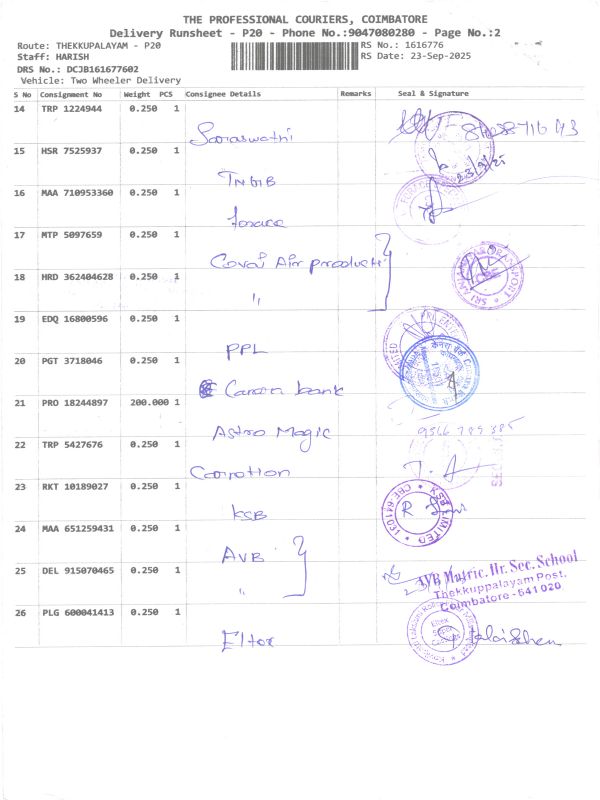 THE PROFESSIONAL COURIERS, COIMBATORE
Delivery Runsheet - P20 - Phone No.:9047080280 - Page No.:2
Route: THEKKUPALAYAM - P20
RS No.: 1616776
Staff: HARISH
RS Date: 23-Sep-2025
DRS No.: DCJB161677602
Vehicle: Two Wheeler Delivery
S No Consignment No Weight PCS Consignee Details Remarks Seal & Signature
14 TRP 1224944 0.250 1
Saraswathi
15 HSR 7525937 0.250 1
23/9/25
TNGB
16 MAA 710953360 0.250 1
forace
17 MTP 5097659 0.250 1
Covai Air products
18 HRD 362404628 0.250 1
"
19 EDQ 16800596 0.250 1
PPL
20 PGT 3718046 0.250 1
Canara bank
21 PRO 18244897 200.000 1
Astro Magic
9366 789 385
22 TRP 5427676 0.250 1
23 RKT 10189027 0.250 1
KSB
KSB LIMITED
CBE-641031
24 MAA 651259431 0.250 1
AVB
25 DEL 915070465 0.250 1
"
AVB Matric. Hr. Sec. School
Thekkuppalayam Post.
Coimbatore - 641 020
26 PLG 600041413 0.250 1